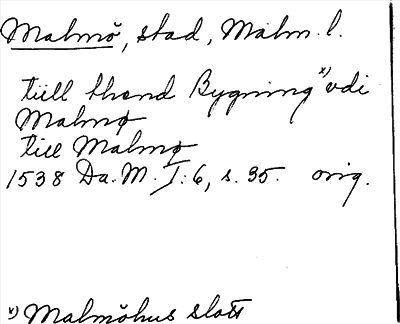 Malmö, stad, Malm. l.
till thend Bygning x) vdi
Malmø
till Malmø
1538 Da. M. I: 6, s. 35. orig.
x) Malmöhus slott